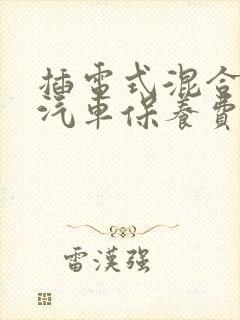 插電式混合
汽車保養費
雷漢强